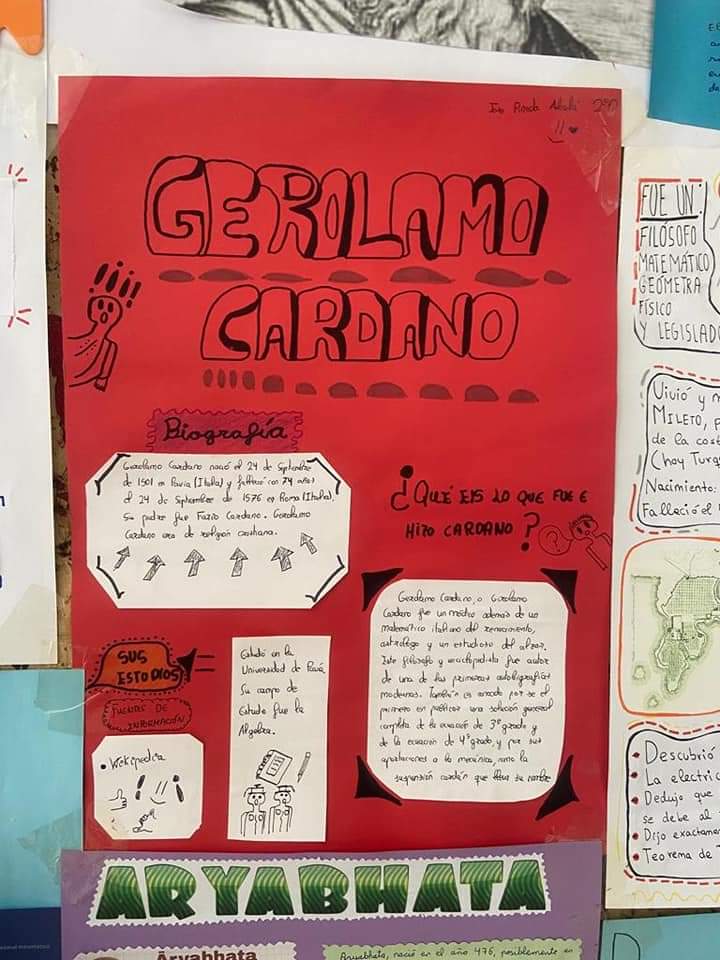 2º
GEROLAMO
CARDANO
Biografía
Gerolamo Cardano nació el 24 de Septiembre
de 1501 en Pavia (Italia) y falleció con 74 años
el 24 de Septiembre de 1576 en Roma (Italia).
Su padre fue Fazio Cardano. Gerolamo
Cardano era de religión cristiana.
¿QUÉ ES LO QUE FUE E
HIZO CARDANO?
Gerolamo Cardano, o Girolamo
Cardano fue un médico además de un
matemático italiano del renacimiento,
astrólogo y un estudioso del alzar.
Este filósofo y enciclopedista fue autor
de una de las primeras autobiografías
modernas. También es conocido por se el
primero en publicar una solución general
completa de la ecuación de 3º grado y
de la ecuación de 4º grado, y por sus
aportaciones a la mecánica, como la
suspensión cardán que lleva su nombre
SUS
ESTODIOS
Estudió en la
Universidad de Pavía.
Su campo de
Estudio fue la
Algebra.
FUENTES DE
INFORMACIÓN
• Wikipedia
ARYABHATA
Āryabhata
Aryabhata, nació en el año 476, posiblemente en
FUE UN:
FILÓSOFO
MATEMÁTICO
GEÓMETRA
FÍSICO
Y LEGISLAD
Vivió y
MILETO,
de la cost
(hoy Turq
Nacimiento:
Falleció el
• Descubrió
• La electric
• Dedujo que
se debe al
• Dijo exactame
• Teorema de T